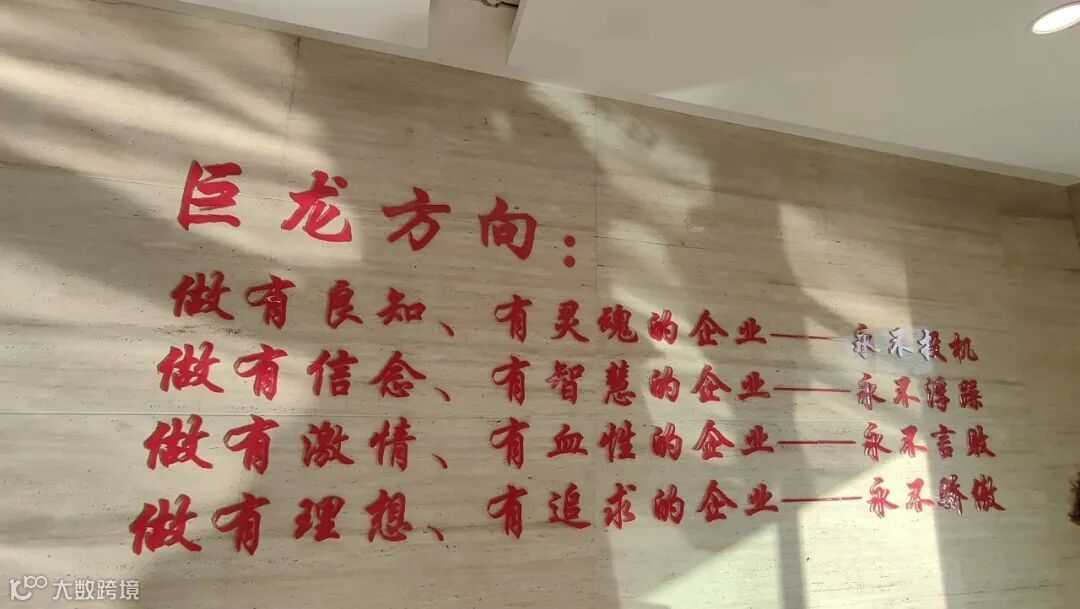 巨龙方向：
做有良知、有灵魂的企业——永不投机
做有信念、有智慧的企业——永不浮躁
做有激情、有血性的企业——永不言败
做有理想、有追求的企业——永不骄傲
大数跨境